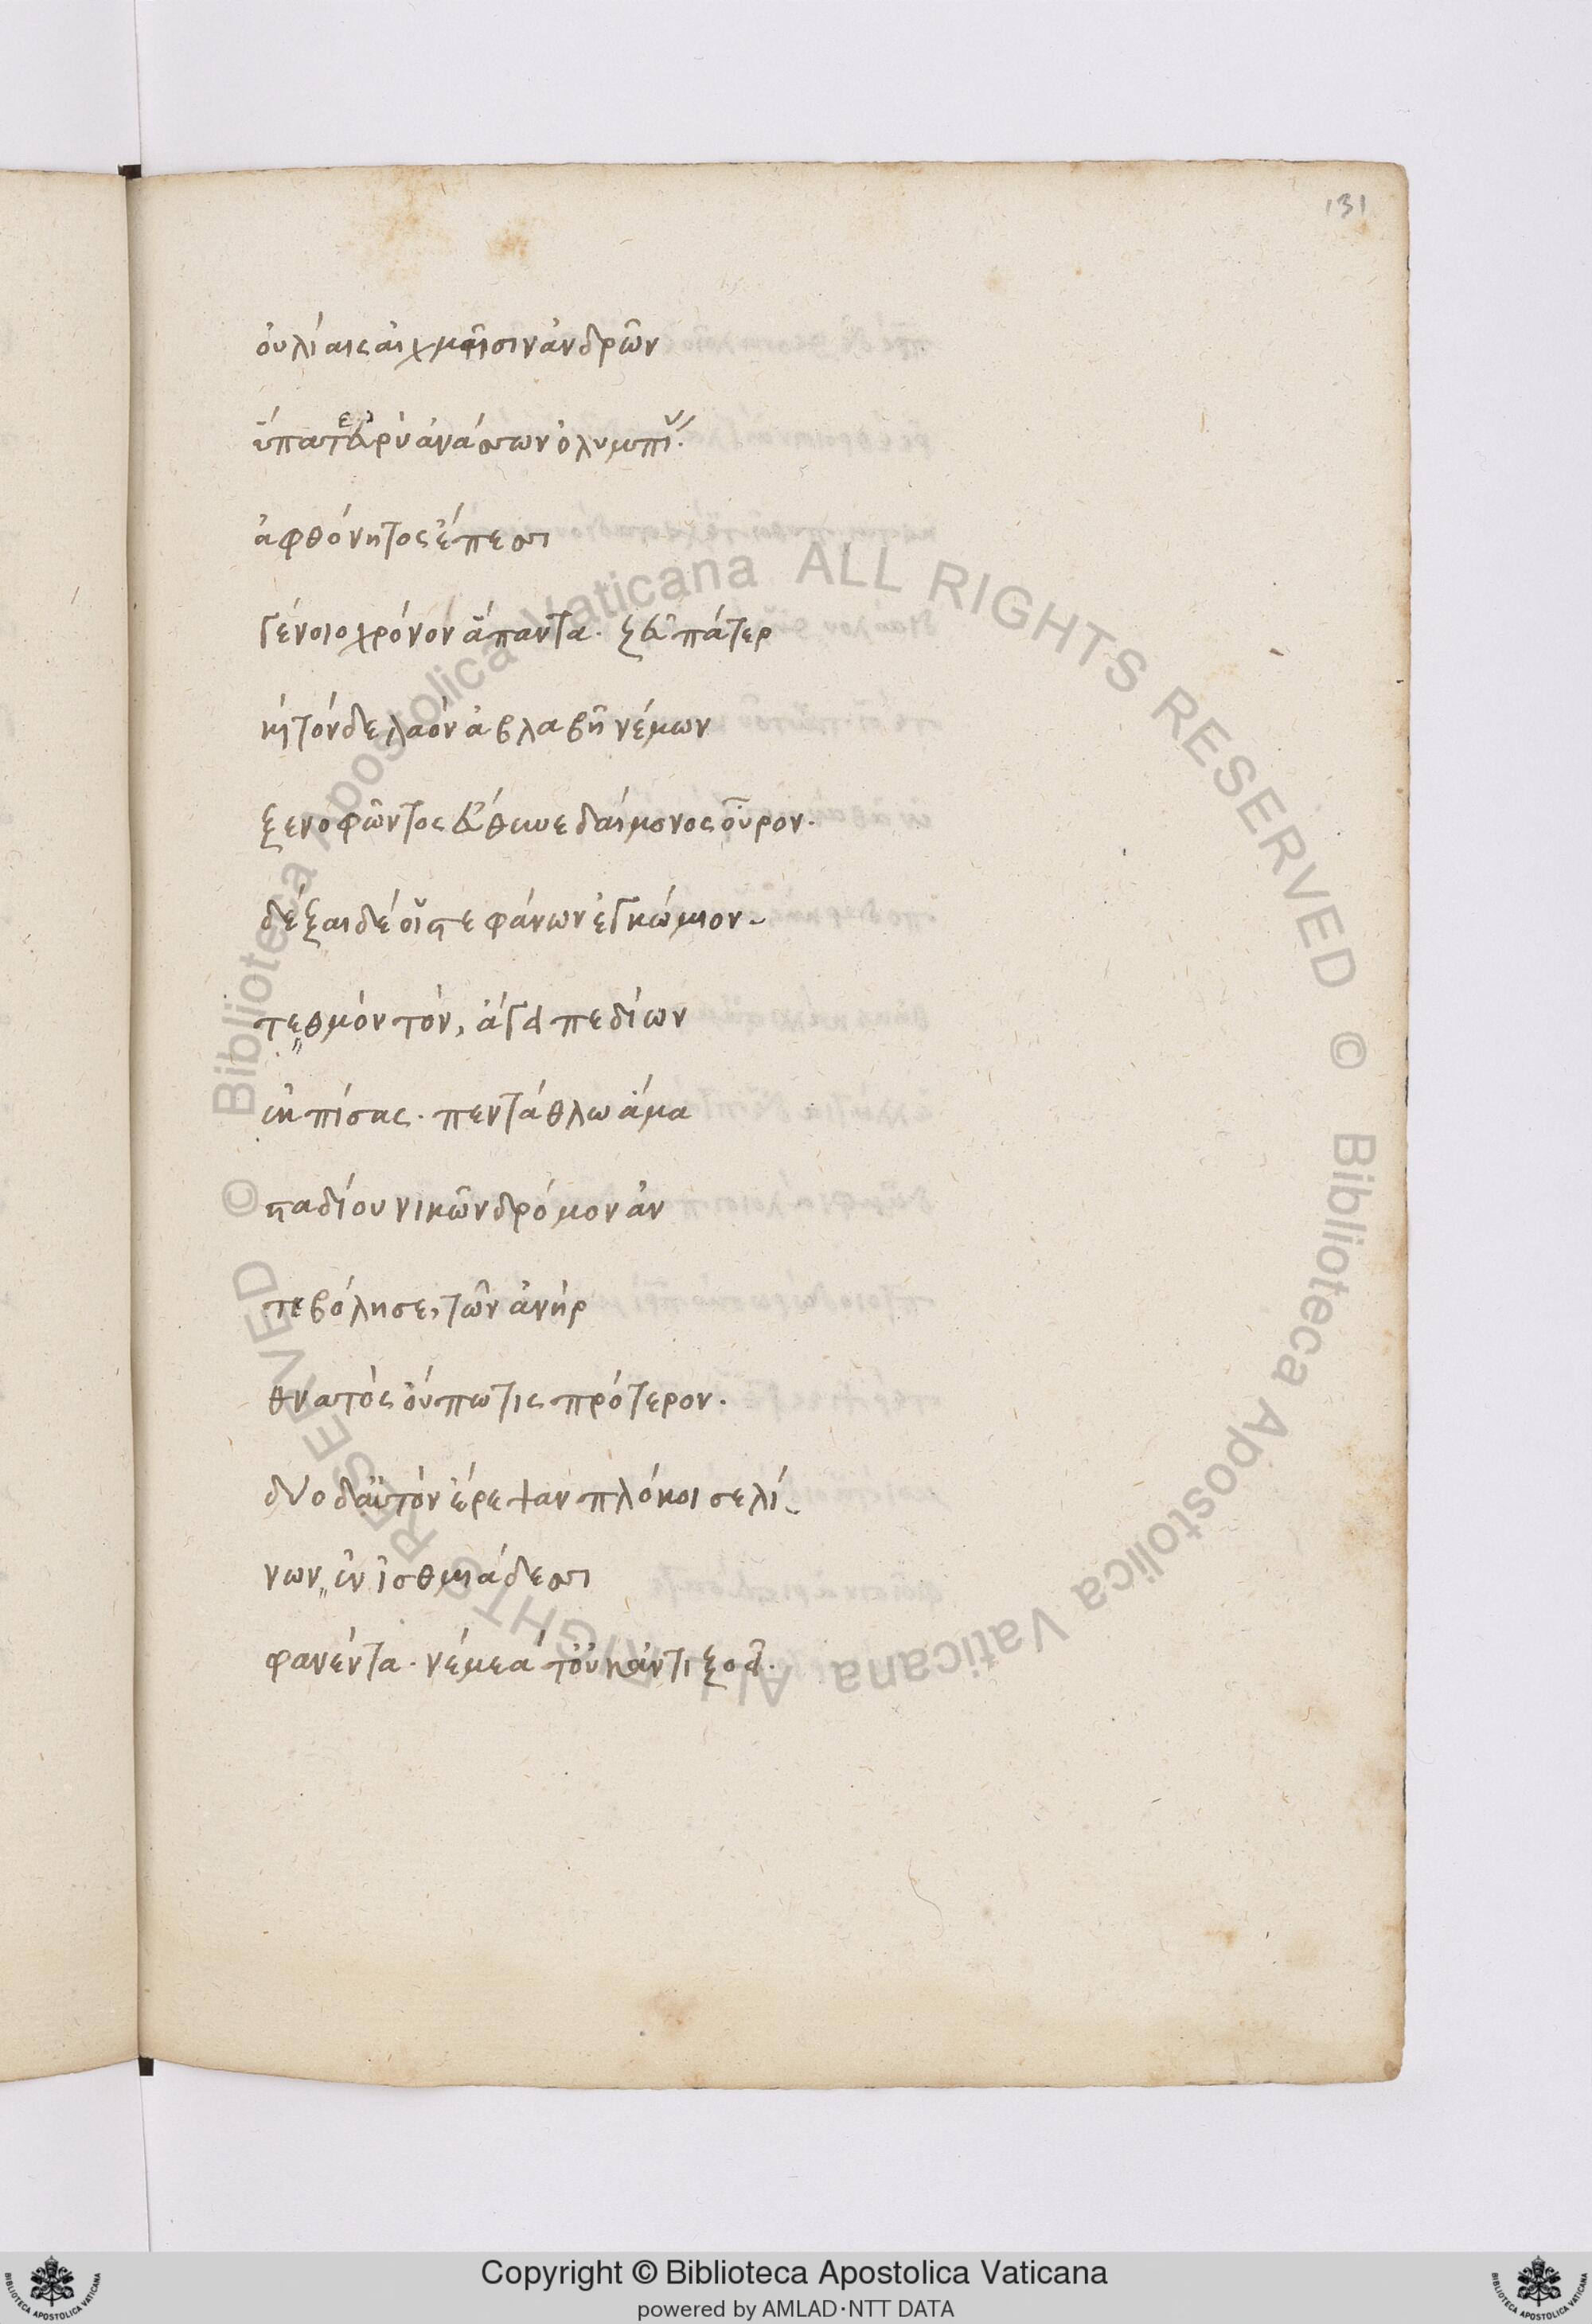 131
οὐλίαις αἰχμαῖσιν ἀνδρῶν
ὕπατ' εὐρὺ ἀνάσσων ὀλυμπί
ἀφθόνητος ἔπεσι
γένοιο χρόνον ἅπαντα. ζεῦ πάτερ
καὶ τόνδε λαὸν ἀβλαβῆ νέμων
ξενοφῶντος εὔθυνε δαίμονος οὖρον.
δέξαι δέ οἱ στεφάνων ἐγκώμιον
τεθμὸν τὸν, ἄγει πεδίων
ἐκ πίσας. πεντάθλω ἅμα
σταδίου νικῶν δρόμον ἀν
τεβόλησε, τῶν ἀνὴρ
θνατὸς οὔπω τις πρότερον.
δύο δ' αὐτὸν ἔρεψαν πλόκοι σελί
νων ἐν ἰσθμιάδεσσι
φανέντα. νέμεά τ' οὐκ ἀντιξοεῖ.
© Biblioteca Apostolica Vaticana ALL RIGHTS RESERVED © Biblioteca Apostolica Vaticana ALL RIGHTS RESERVED
BIBLIOTECA APOSTOLICA VATICANA
Copyright © Biblioteca Apostolica Vaticana
powered by AMLAD·NTT DATA
BIBLIOTECA APOSTOLICA VATICANA